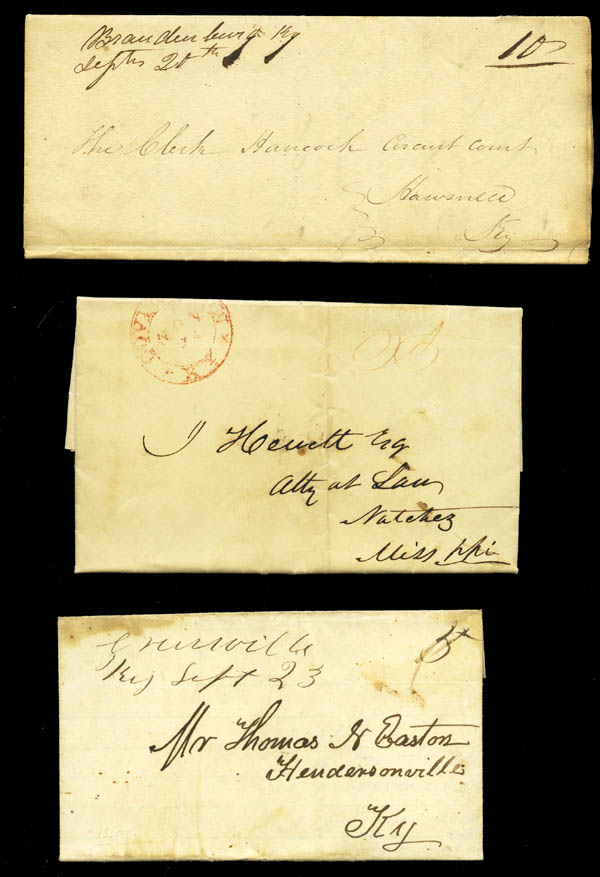 Brandenburg Ky
Septr 20th
10
The Clerk Hancock Circuit Court
Hawsville
Ky
J Hewett Esq
Atty at Law
Natchez
Miss ppi
Greenville
Ky Sept 23
5
Mr Thomas N Easton
Hendersonville
Ky